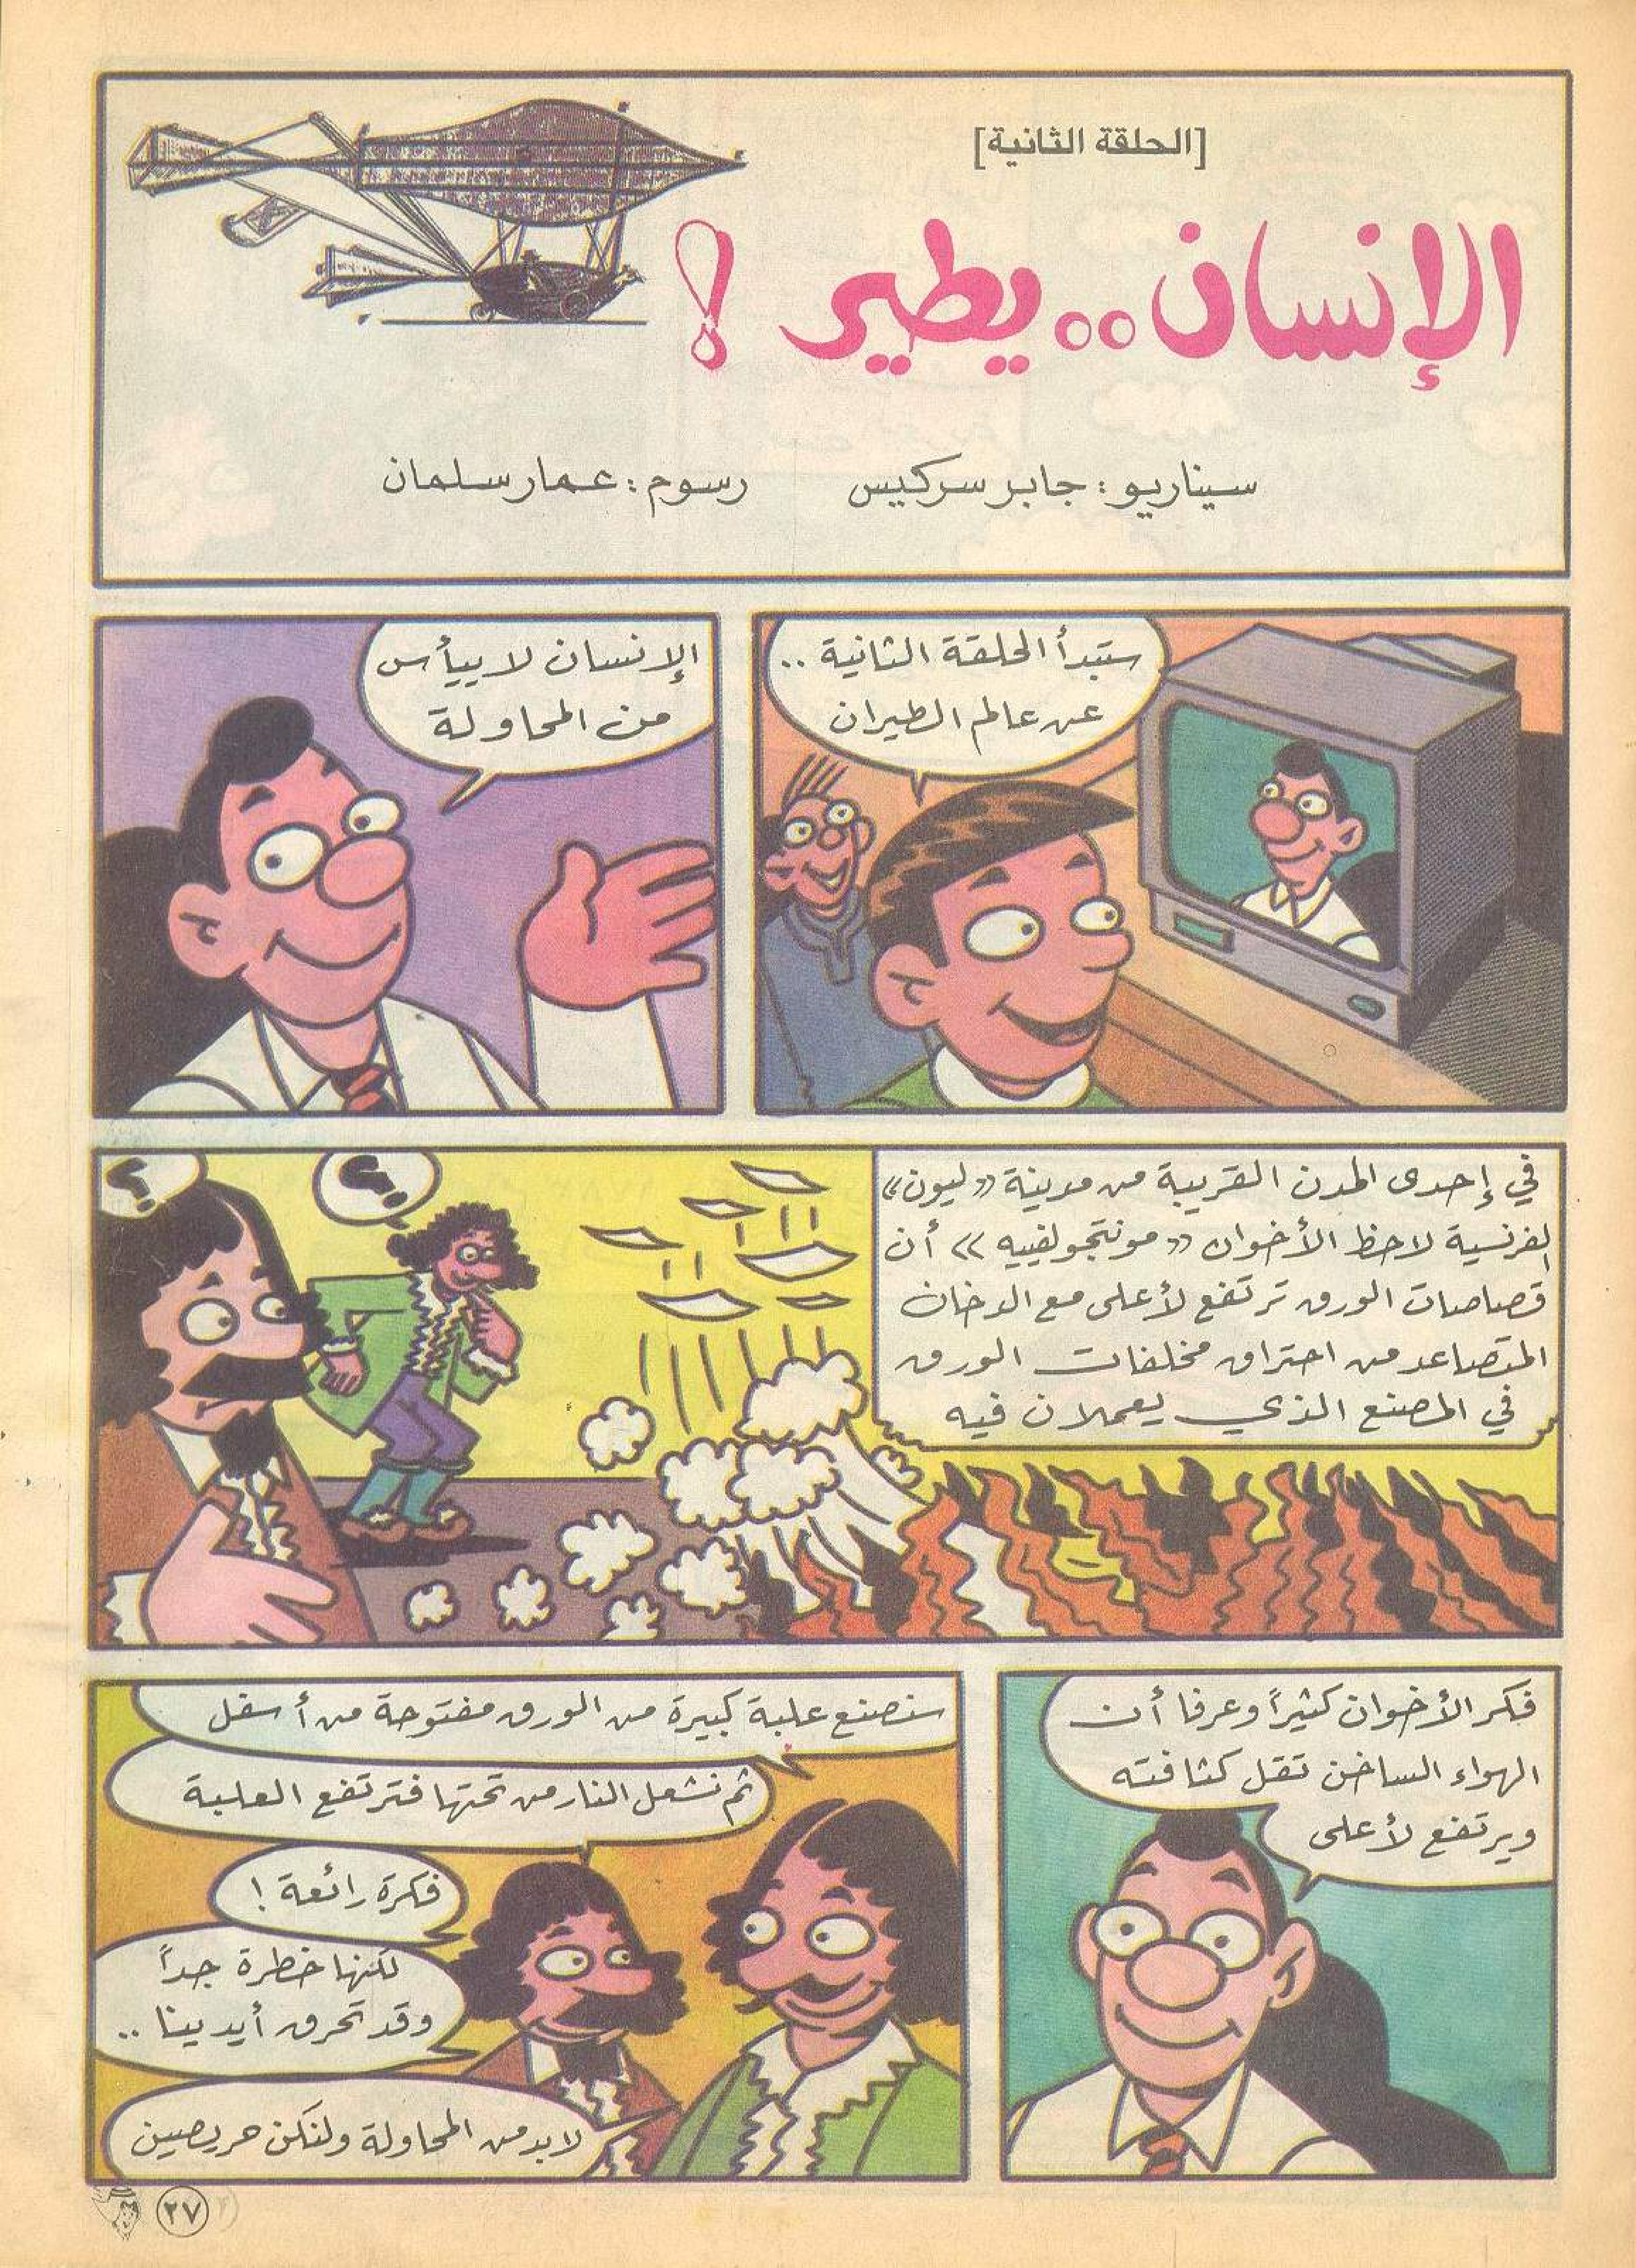 [الحلقة الثانية]
الإنسان..يطير !
سيناريو : جابر سركيس
رسوم : عمار سلمان
ستبدأ الحلقة الثانية ..
عن عالم الطيران
الإنسان لا ييأس
من المحاولة
في إحدى المدن القريبة من مدينة «ليون»
الفرنسية لاحظ الأخوان «مونتجولفييه» أن
قصاصات الورق ترتفع لأعلى مع الدخان
المتصاعد من احتراق مخلفات الورق
في المصنع الذي يعملان فيه
؟
؟
فكر الأخوان كثيراً وعرفا أن
الهواء الساخن تقل كثافته
ويرتفع لأعلى
سنصنع علبة كبيرة من الورق مفتوحة من أسفل
ثم نشعل النار من تحتها فترتفع العلبة
فكرة رائعة !
لكنها خطرة جداً
وقد تحرق أيدينا ..
لابد من المحاولة ولنكن حريصين
٢٧